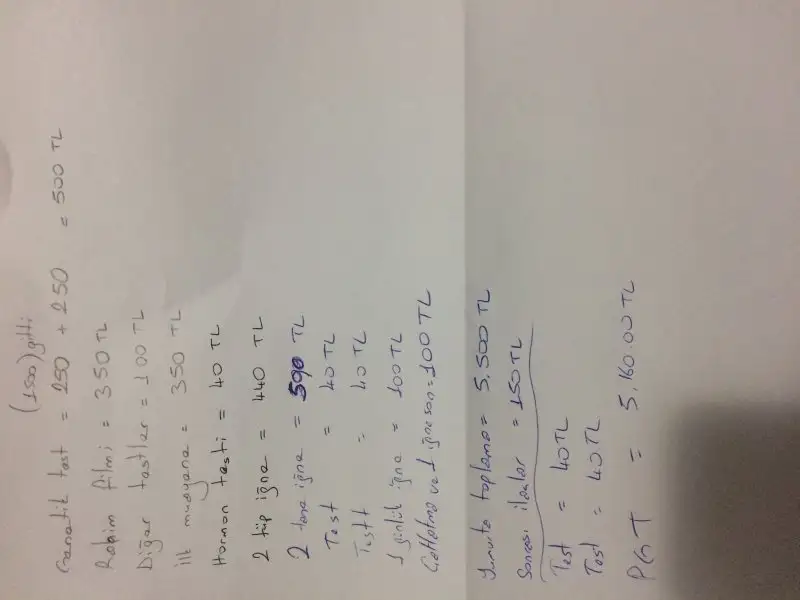 (1500) gitti
Genetik test = 250 + 250 = 500 TL
Rahim filmi = 350 TL
Diğer testler = 100 TL
ilk muayene = 350 TL
Hormon testi = 40 TL
2 tüp iğne = 440 TL
2 tane iğne = 500 TL
Test = 40 TL
Testt = 40 TL
1 günlük iğne = 100 TL
Çatlatma ve 1 iğne son = 100 TL
Yumurta toplama = 5.500 TL
Sonrası ilaçlar = 150 TL
Test = 40 TL
Test = 40 TL
PGT = 5.160.00 TL